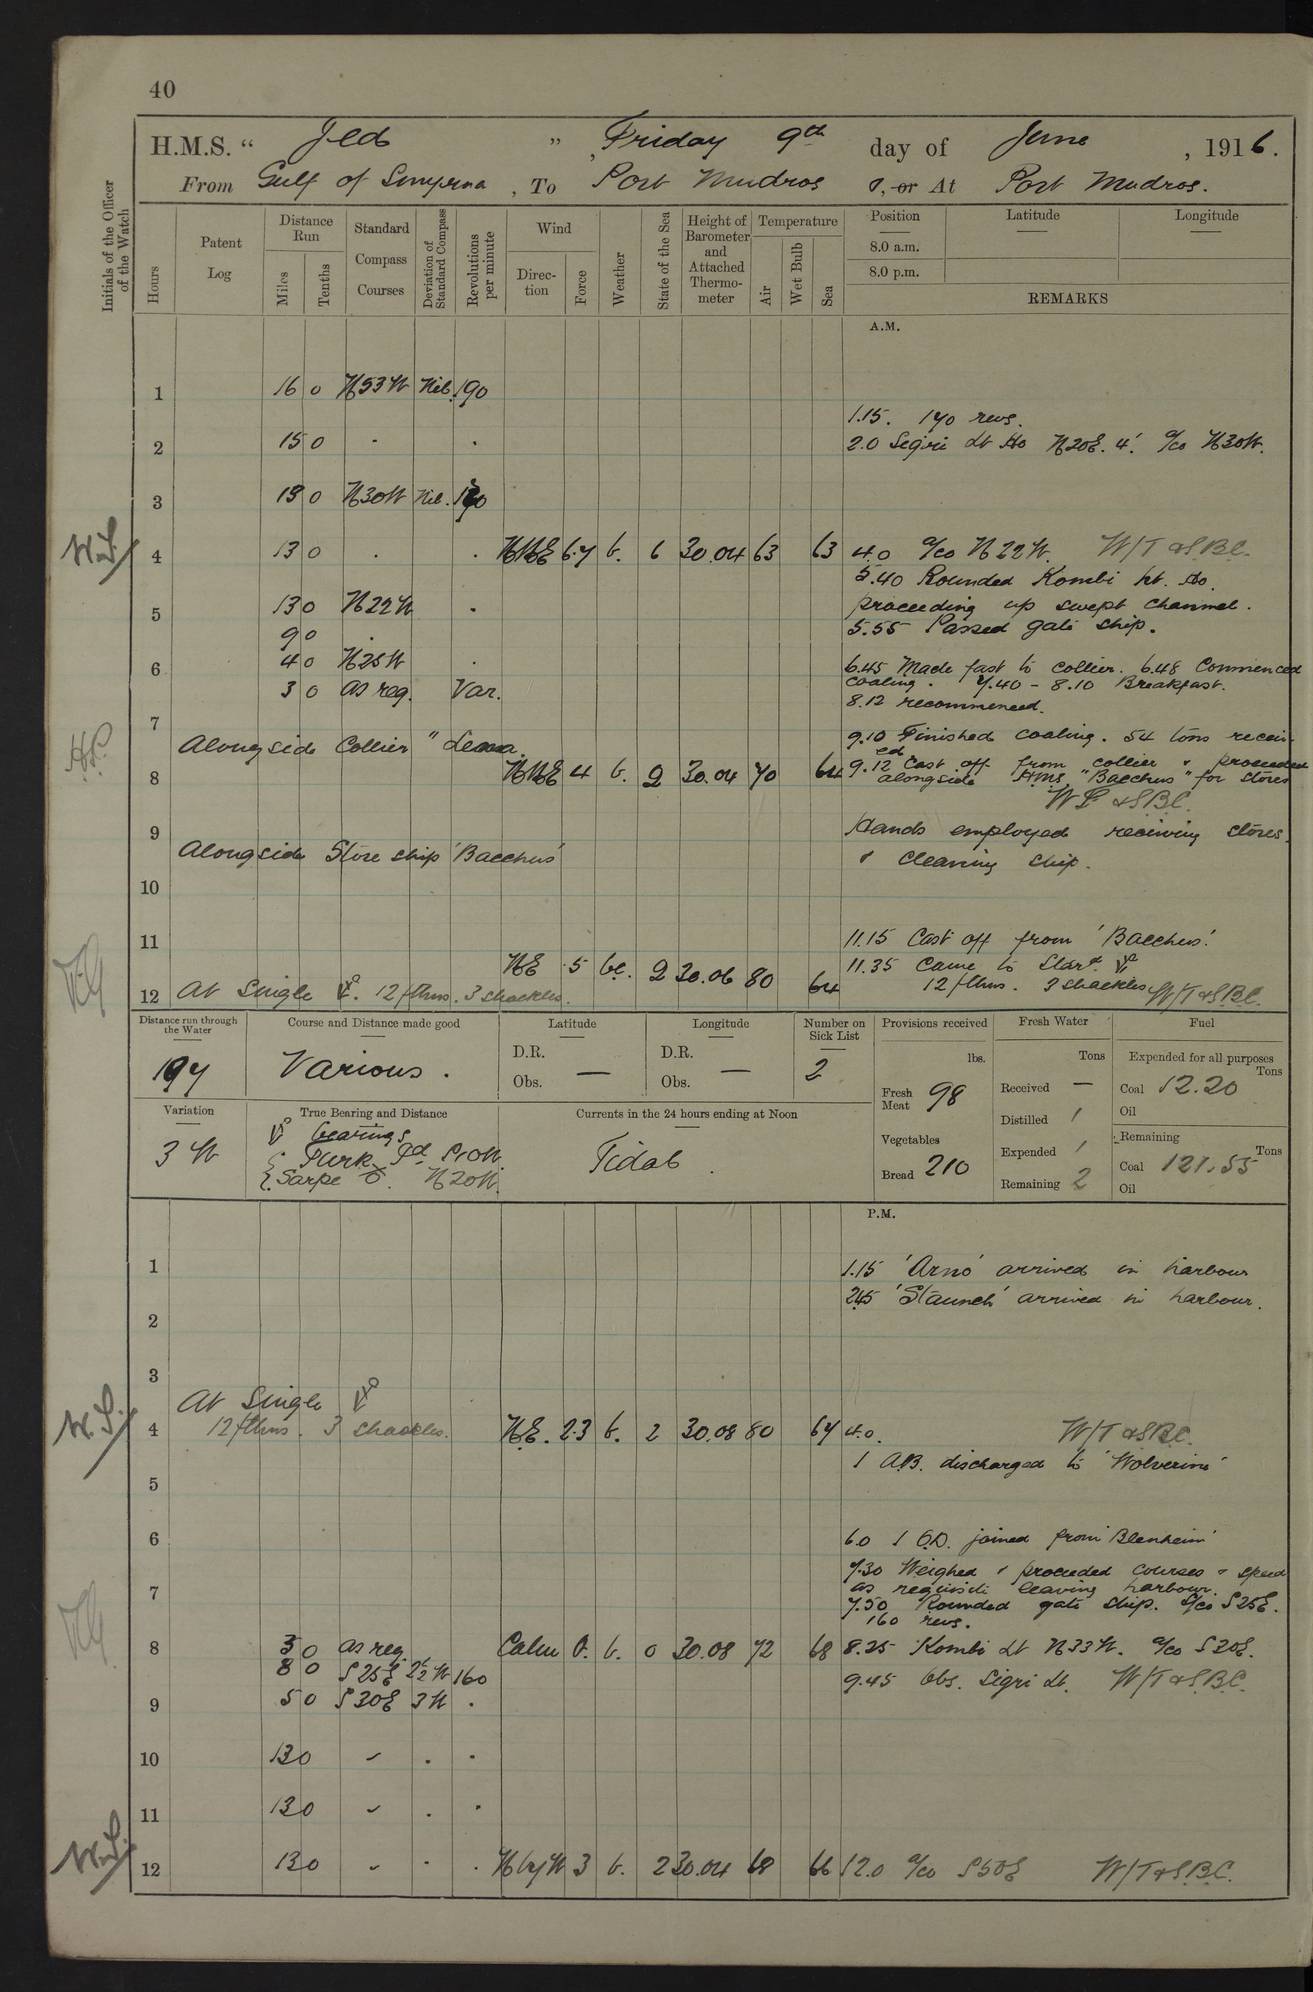 40
H.M.S. " Jed " , Friday 9th day of June , 1916.
From Gulf of Smyrna , To Port Mudros , or At Port Mudros.
Initials of the Officer of the Watch
Hours
Patent Log
Distance Run
Miles
Tenths
Standard Compass Courses
Deviation of Standard Compass
Revolutions per minute
Wind
Direction
Force
Weather
State of the Sea
Height of Barometer and Attached Thermometer
Temperature
Air
Wet Bulb
Sea
Position Latitude Longitude
8.0 a.m.
8.0 p.m.
REMARKS
A.M.
1 16 0 N53W Nil. 190
1.15. 170 revs.
2 15 0 . .
2.0 Sigri Lt Ho N20E. 4'. a/co N30W.
3 13 0 N30W Nil. 170
4 13 0 . . NNE 6.7 b. 6 30.04 63 63 4.0 a/co N22W. W/T & S.B.C.
5.40 Rounded Kombi Lt. Ho.
5 13 0 N22W . proceeding up swept channel.
9 0 .
5.55 Passed gate ship.
6 4 0 N25W .
6.45 Made fast to collier. 6.48 Commenced
coaling. 7.40 - 8.10 Breakfast.
3 0 as req. Var.
8.12 recommenced.
7
9.10 Finished coaling. 54 tons receiv-
ed
Alongside Collier "
8 NNE 4 b. 2 30.04 70 64 9.12 Cast off from collier & proceeded
alongside HMS. "Bacchus" for stores
& S.B.C.
9
Hands employed receiving stores
Alongside Store ship 'Bacchus'
& cleaning ship.
10
11
11.15 Cast off from 'Bacchus'.
NE 5 bc. 2 30.06 80 64 11.35 Came to Starb.
12 At Single . 12 fthms. 3 shackles.
12 fthms. 3 shackles W/T & S.B.C.
Distance run through the Water
197
Course and Distance made good
Various.
Latitude
D.R.
Obs. —
Longitude
D.R.
Obs. —
Number on Sick List
2
Provisions received
lbs.
Fresh Meat 98
Vegetables
Bread 210
Fresh Water
Tons
Received —
Distilled
Expended 1
Remaining 2
Fuel
Expended for all purposes
Tons
Coal 12.20
Oil
Remaining
Tons
Coal 121.55
Oil
Variation
3 W
True Bearing and Distance
bearings
Turk Id S10W
Sarpe N20W.
Currents in the 24 hours ending at Noon
Tidal.
P.M.
1 1.15 'Arno' arrived in harbour
2.45 'Staunch' arrived in harbour.
2
3
At Single
4 12 fthms. 3 shackles. NE. 2.3 b. 2 30.08 80 64 4.0. W/T & S.B.C.
1 A.B. discharged to 'Wolverine'
5
6 6.0 1 O.D. joined from 'Blenheim'
7.30 Weighed & proceeded courses & speed
as requisite leaving harbour.
7
7.50 Rounded gate ship. a/co S25E.
160 revs.
8 3 0 as req. Calm 0. b. 0 30.08 72 68 8.25 Kombi Lt N33W. a/co S30E.
8 0 S25E 2½W 160
9.45 Obs. Sigri Lt. W/T & S.B.C.
9 5 0 S30E 3W .
10 13 0 . .
11 13 0 . .
12 13 0 . . NbyW 3 b. 2 30.04 68 66 12.0 a/co S50E W/T & S.B.C.